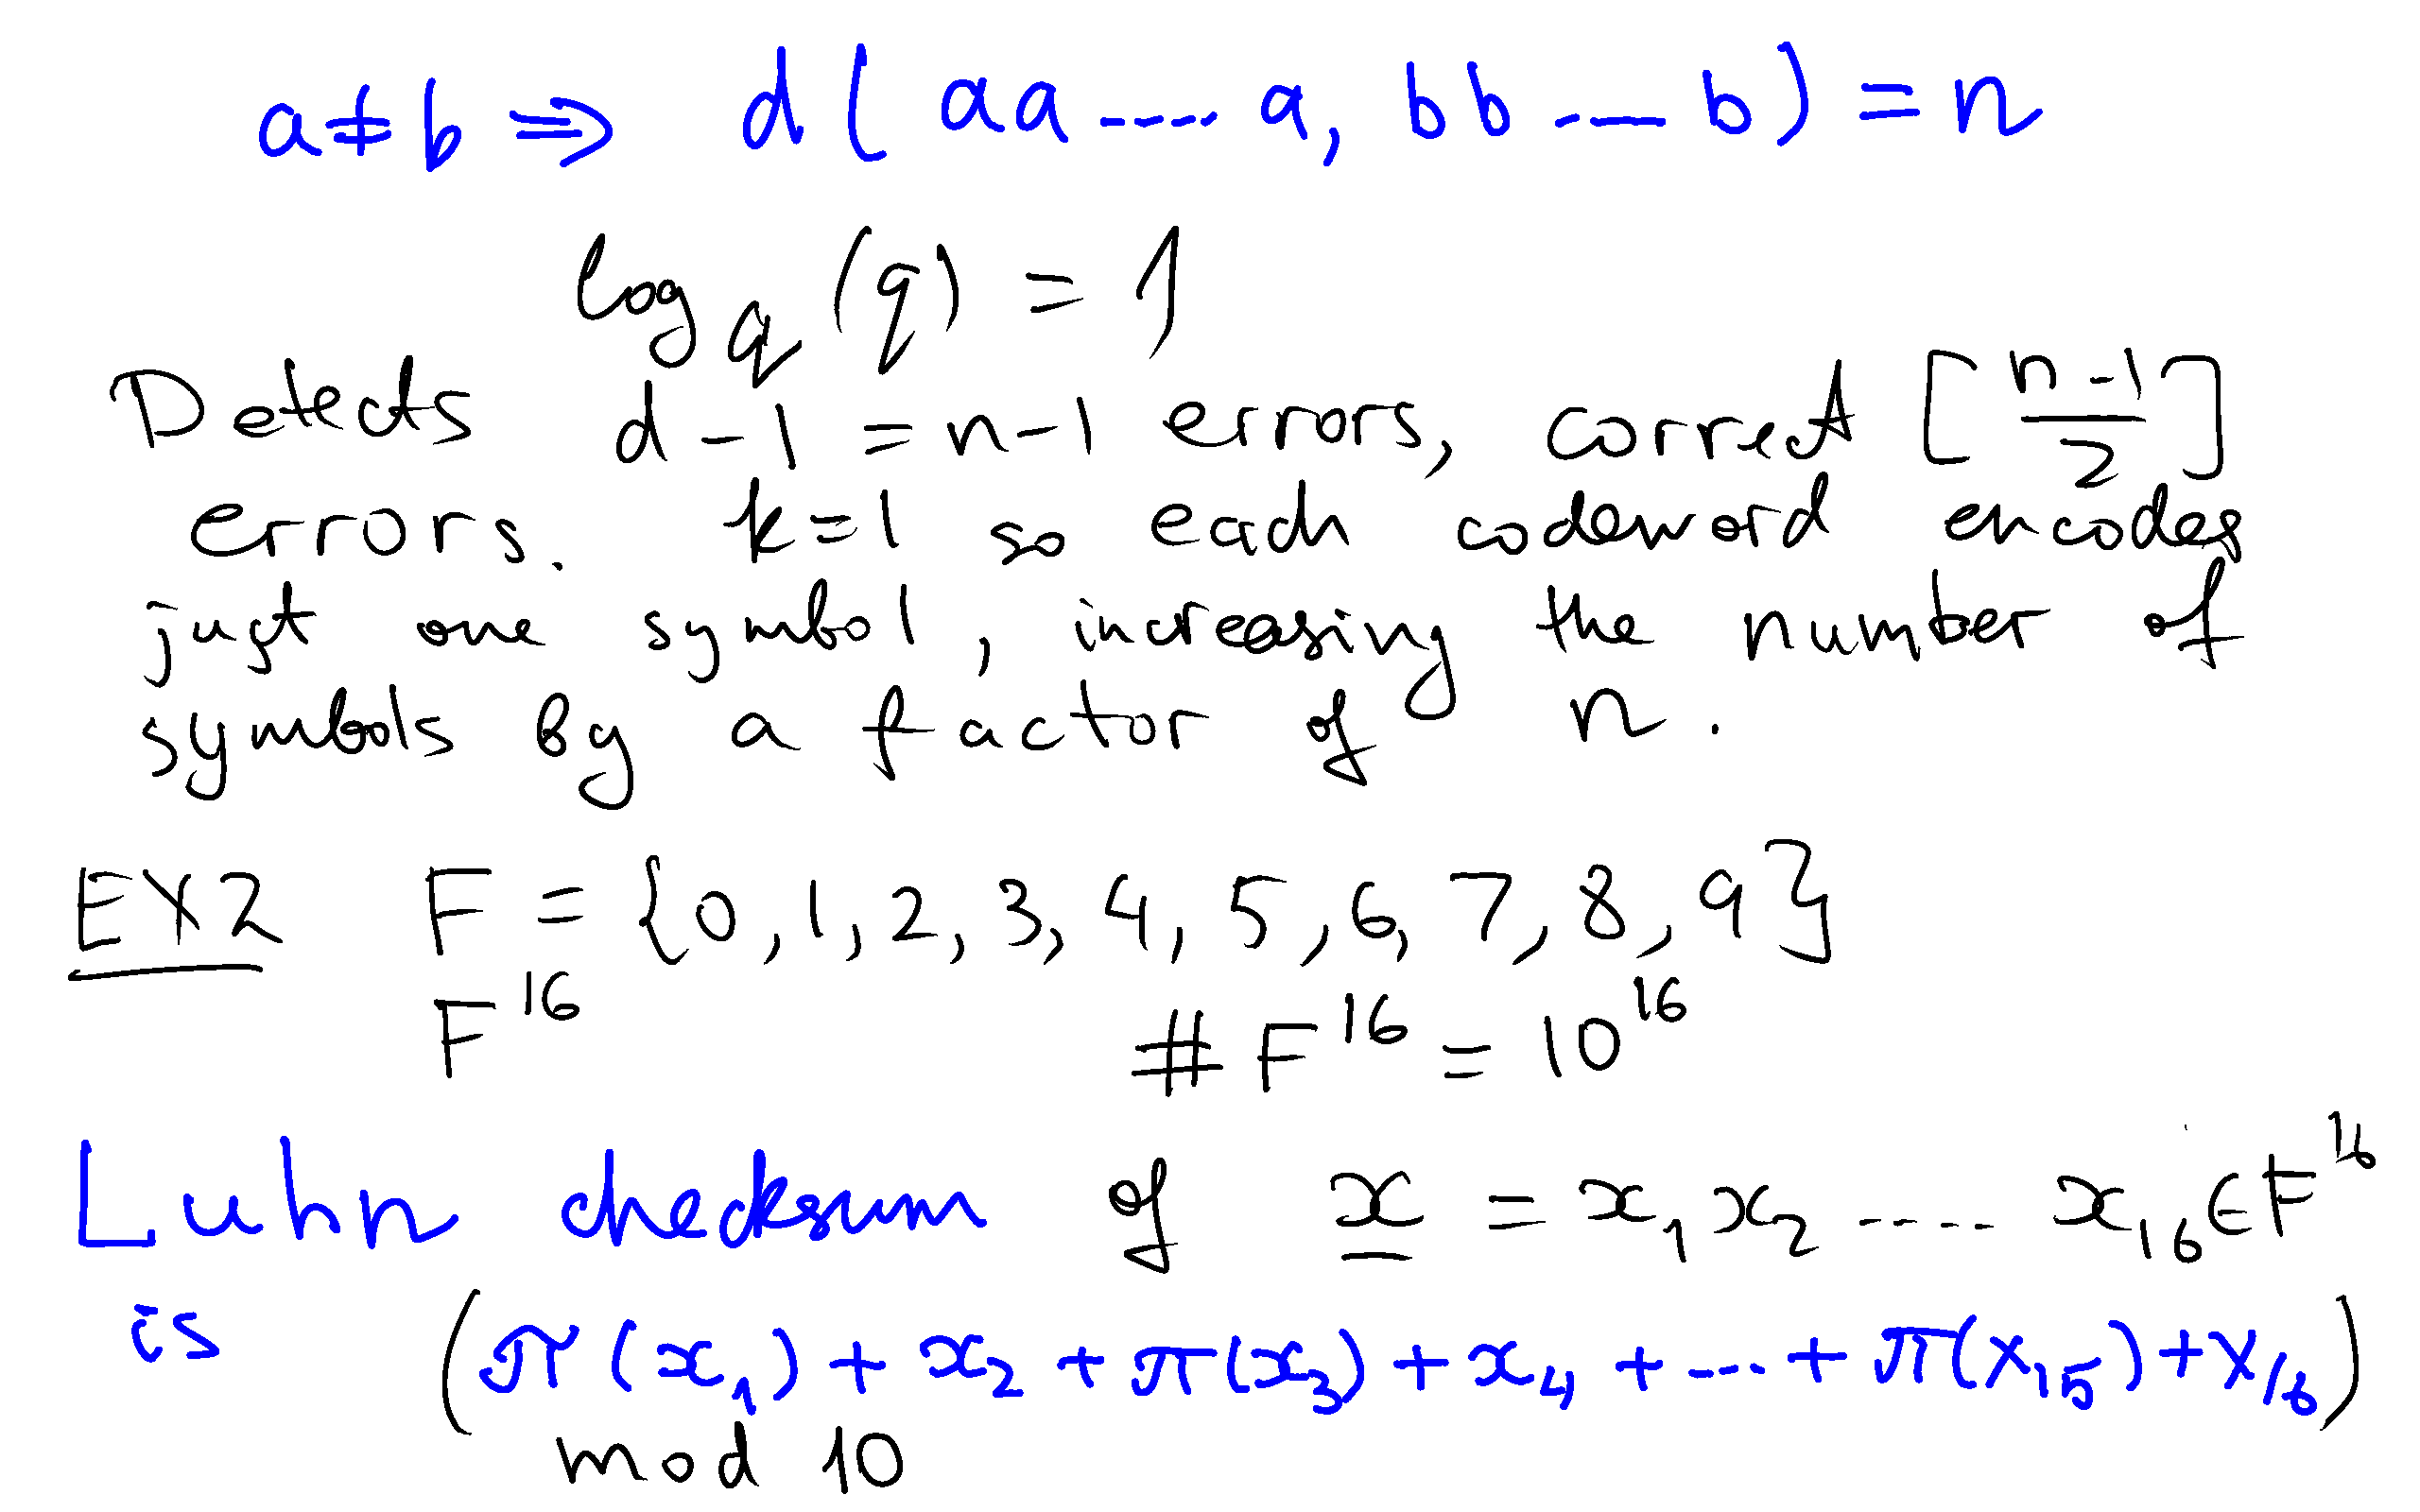 a≠b ⇒ d( aa---- a, bb ---- b) = n
log_q (q) = 1
Detects d-1 = n-1 errors, correct [(n-1)/2]
errors. k=1 so each codeword encodes
just one symbol, increasing the number of
symbols by a factor of n.
EX2 F = {0,1,2,3,4,5,6,7,8,9}
F^16 #F^16 = 10^16
Luhn checksum of x = x_1 x_2 ---- x_16 ∈ F^16
is (π(x_1) + x_2 + π(x_3) + x_4 + --- + π(x_15) + x_16)
mod 10